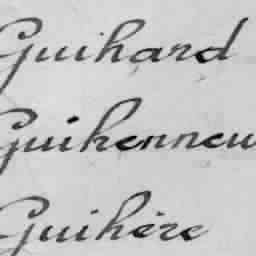 Guihard
Guihenneu
Guihére